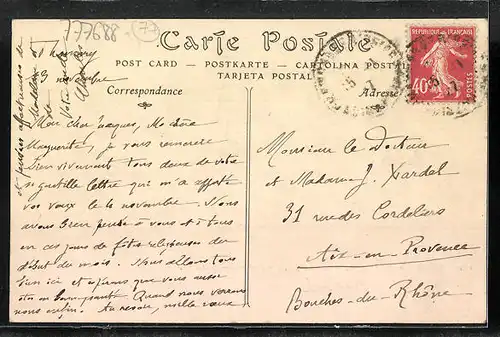 777688
(77)
Carte Postale
POST CARD — POSTKARTE — CARTOLINA POSTAL
TARJETA POSTAL
Correspondance
Adresse
REPUBLIQUE FRANÇAISE
40
POSTES
novembre
Mon cher Jacques, Ma chère
Marguerite, je vous remercie
bien vivement tous deux de votre
si gentille lettre qui m'a apporté
vos vœux le 4 novembre. Nous
avons bien pensé à vous et à tous
en ces jours de fêtes religieuses du
début du mois. Nous allons tous
bien ici et espérons que vous aussi
Quand nous verrons
nous enfin. Au revoir, mille vœux
Monsieur le Docteur
et Madame J. Xardel
31 rue des Cordeliers
Aix-en-Provence
Bouches-du-Rhône